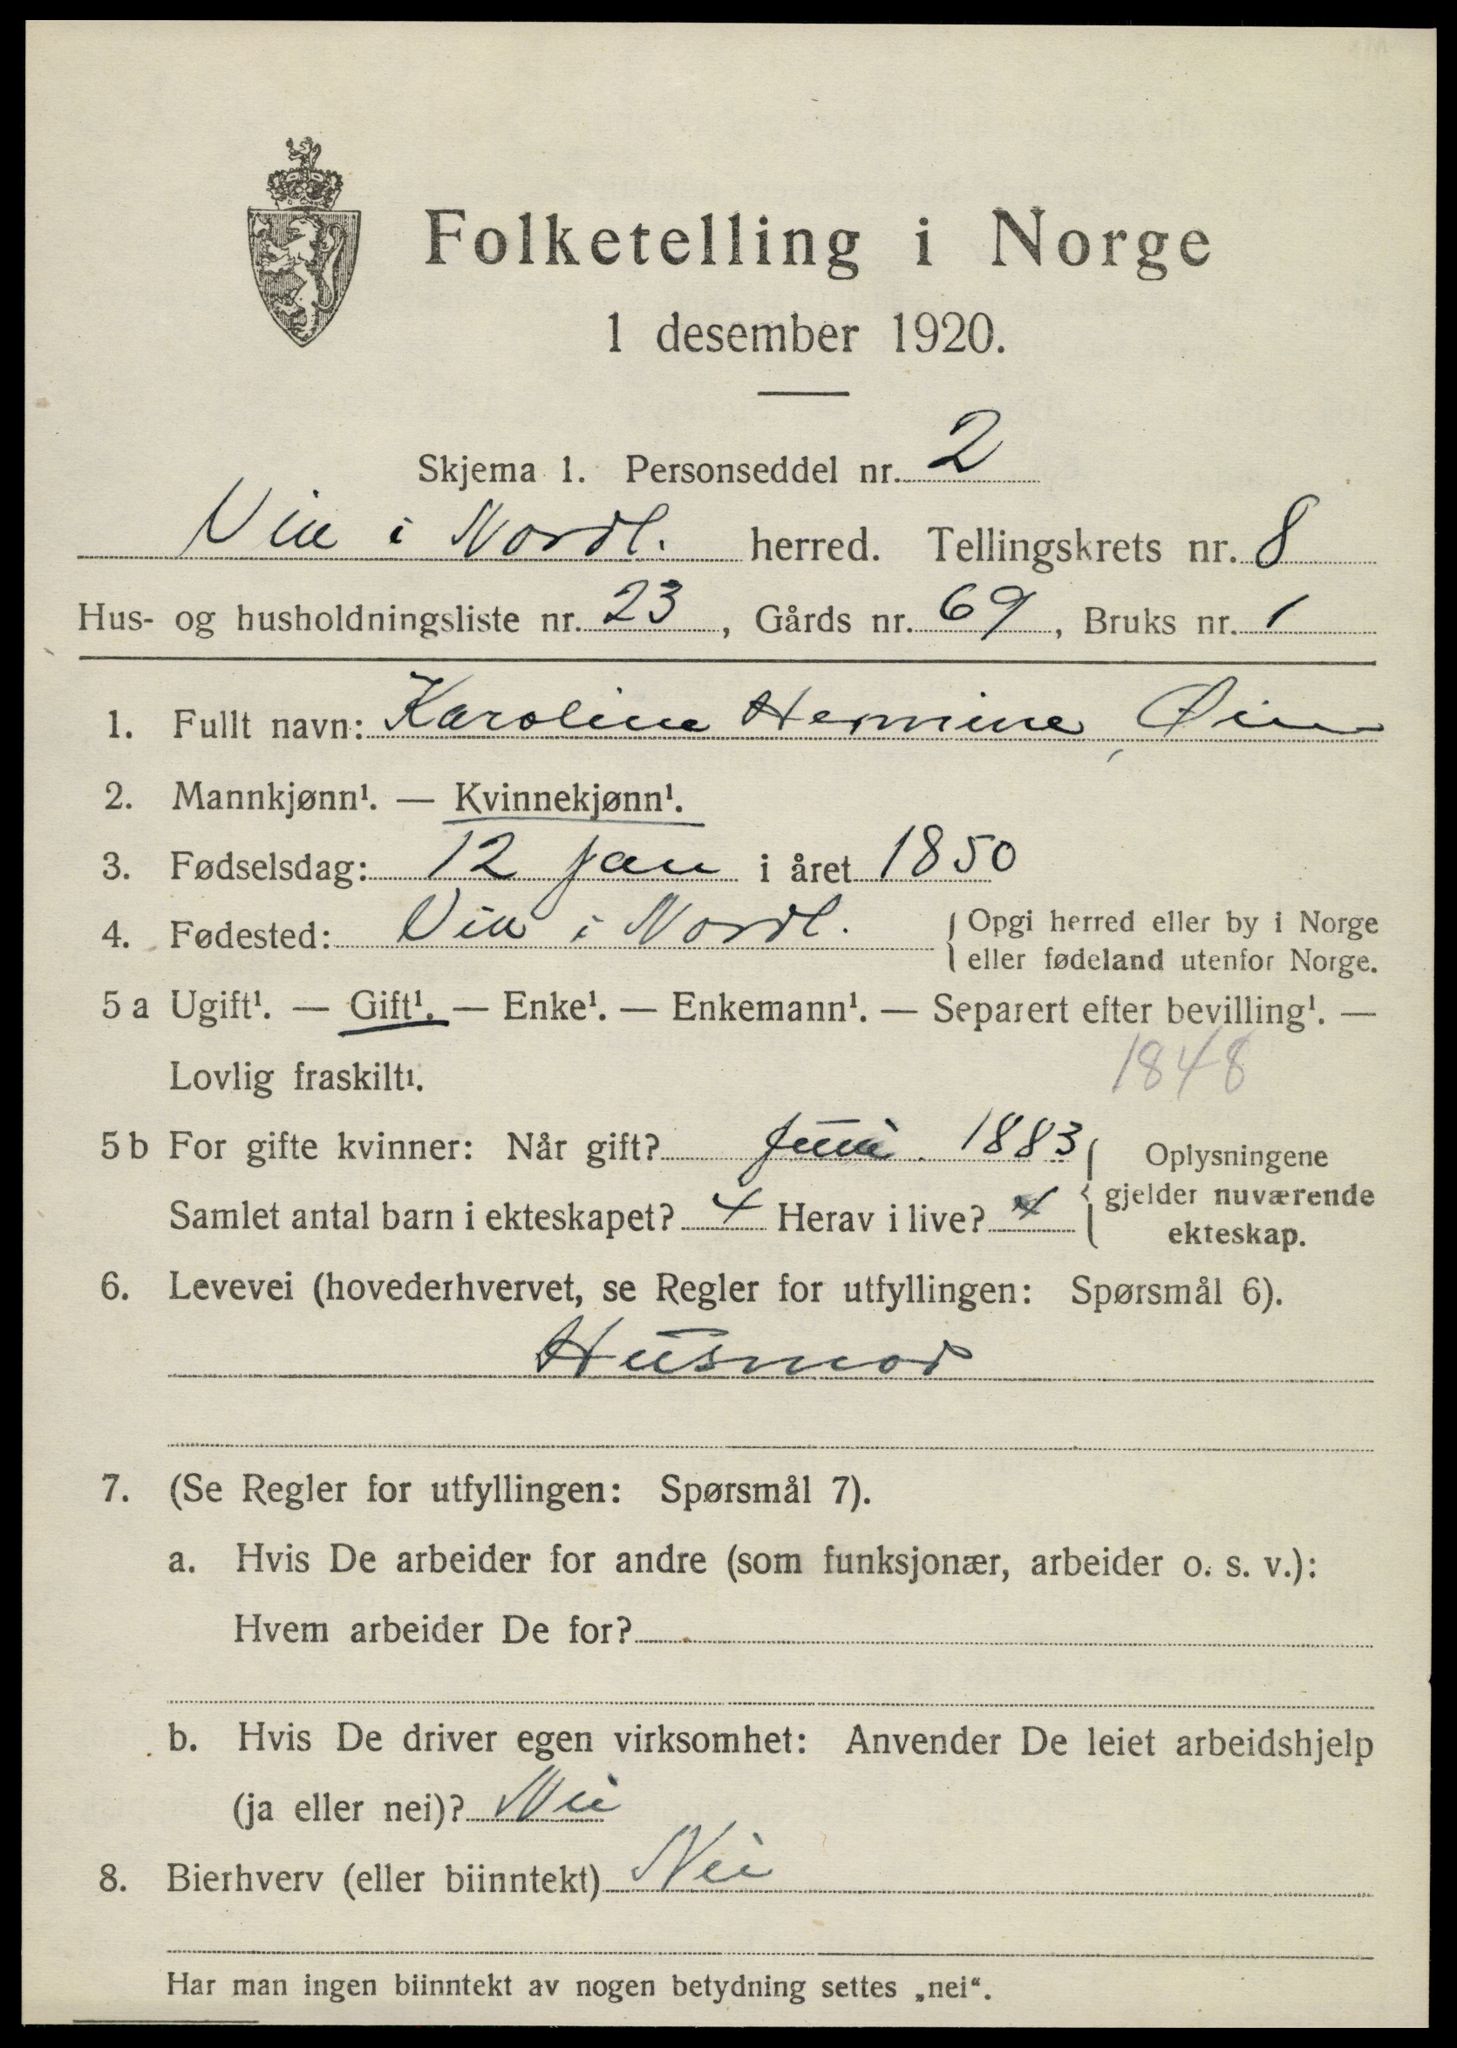 Folketelling i Norge
1 desember 1920.
Skjema 1. Personseddel nr. 2
Vik i Nordl. herred. Tellingskrets nr. 8
Hus- og husholdningsliste nr. 23, Gårds nr. 69, Bruks nr. 1
1. Fullt navn: Karoline Hermine Øien
2. Mannkjønn¹. — Kvinnekjønn¹.
3. Fødselsdag: 12 jan i året 1850
4. Fødested: Vik i Nordl. { Opgi herred eller by i Norge
eller fødeland utenfor Norge.
5 a Ugift¹. — Gift¹. — Enke¹. — Enkemann¹. — Separert efter bevilling¹. —
Lovlig fraskilt¹. 1848
5 b For gifte kvinner: Når gift? Juni 1883 { Oplysningene
Samlet antal barn i ekteskapet? 4 Herav i live? 4 gjelder nuværende
ekteskap.
6. Levevei (hovederhvervet, se Regler for utfyllingen: Spørsmål 6).
Husmor
7. (Se Regler for utfyllingen: Spørsmål 7).
a. Hvis De arbeider for andre (som funksjonær, arbeider o. s. v.):
Hvem arbeider De for?
b. Hvis De driver egen virksomhet: Anvender De leiet arbeidshjelp
(ja eller nei)? Nei
8. Bierhverv (eller biinntekt) Nei
Har man ingen biinntekt av nogen betydning settes „nei“.